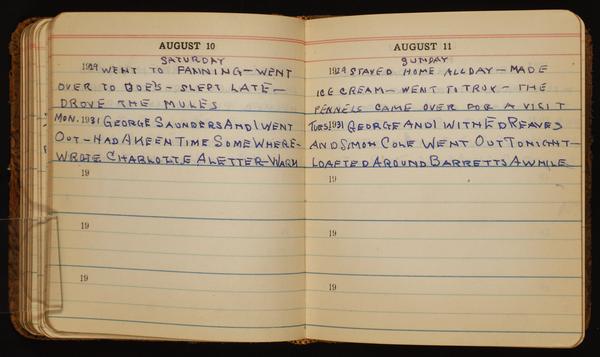 AUGUST 10
SATURDAY
1929 WENT TO FANNING - WENT
OVER TO DOE'S - SLEPT LATE -
DROVE THE MULES
MON. 1931 GEORGE SAUNDERS AND I WENT
OUT - HAD A KEEN TIME SOME WHERE -
WROTE CHARLOTTE A LETTER - WARM
19
19
19
AUGUST 11
SUNDAY
1929 STAYED HOME ALL DAY - MADE
ICE CREAM - WENT TO TROY - THE
PENNELS CAME OVER FOR A VISIT
TUES. 1931 GEORGE AND I WITH ED REAVES
AND SIMON COLE WENT OUT TONIGHT -
LOAFTED AROUND BARRETTS A WHILE
19
19
19